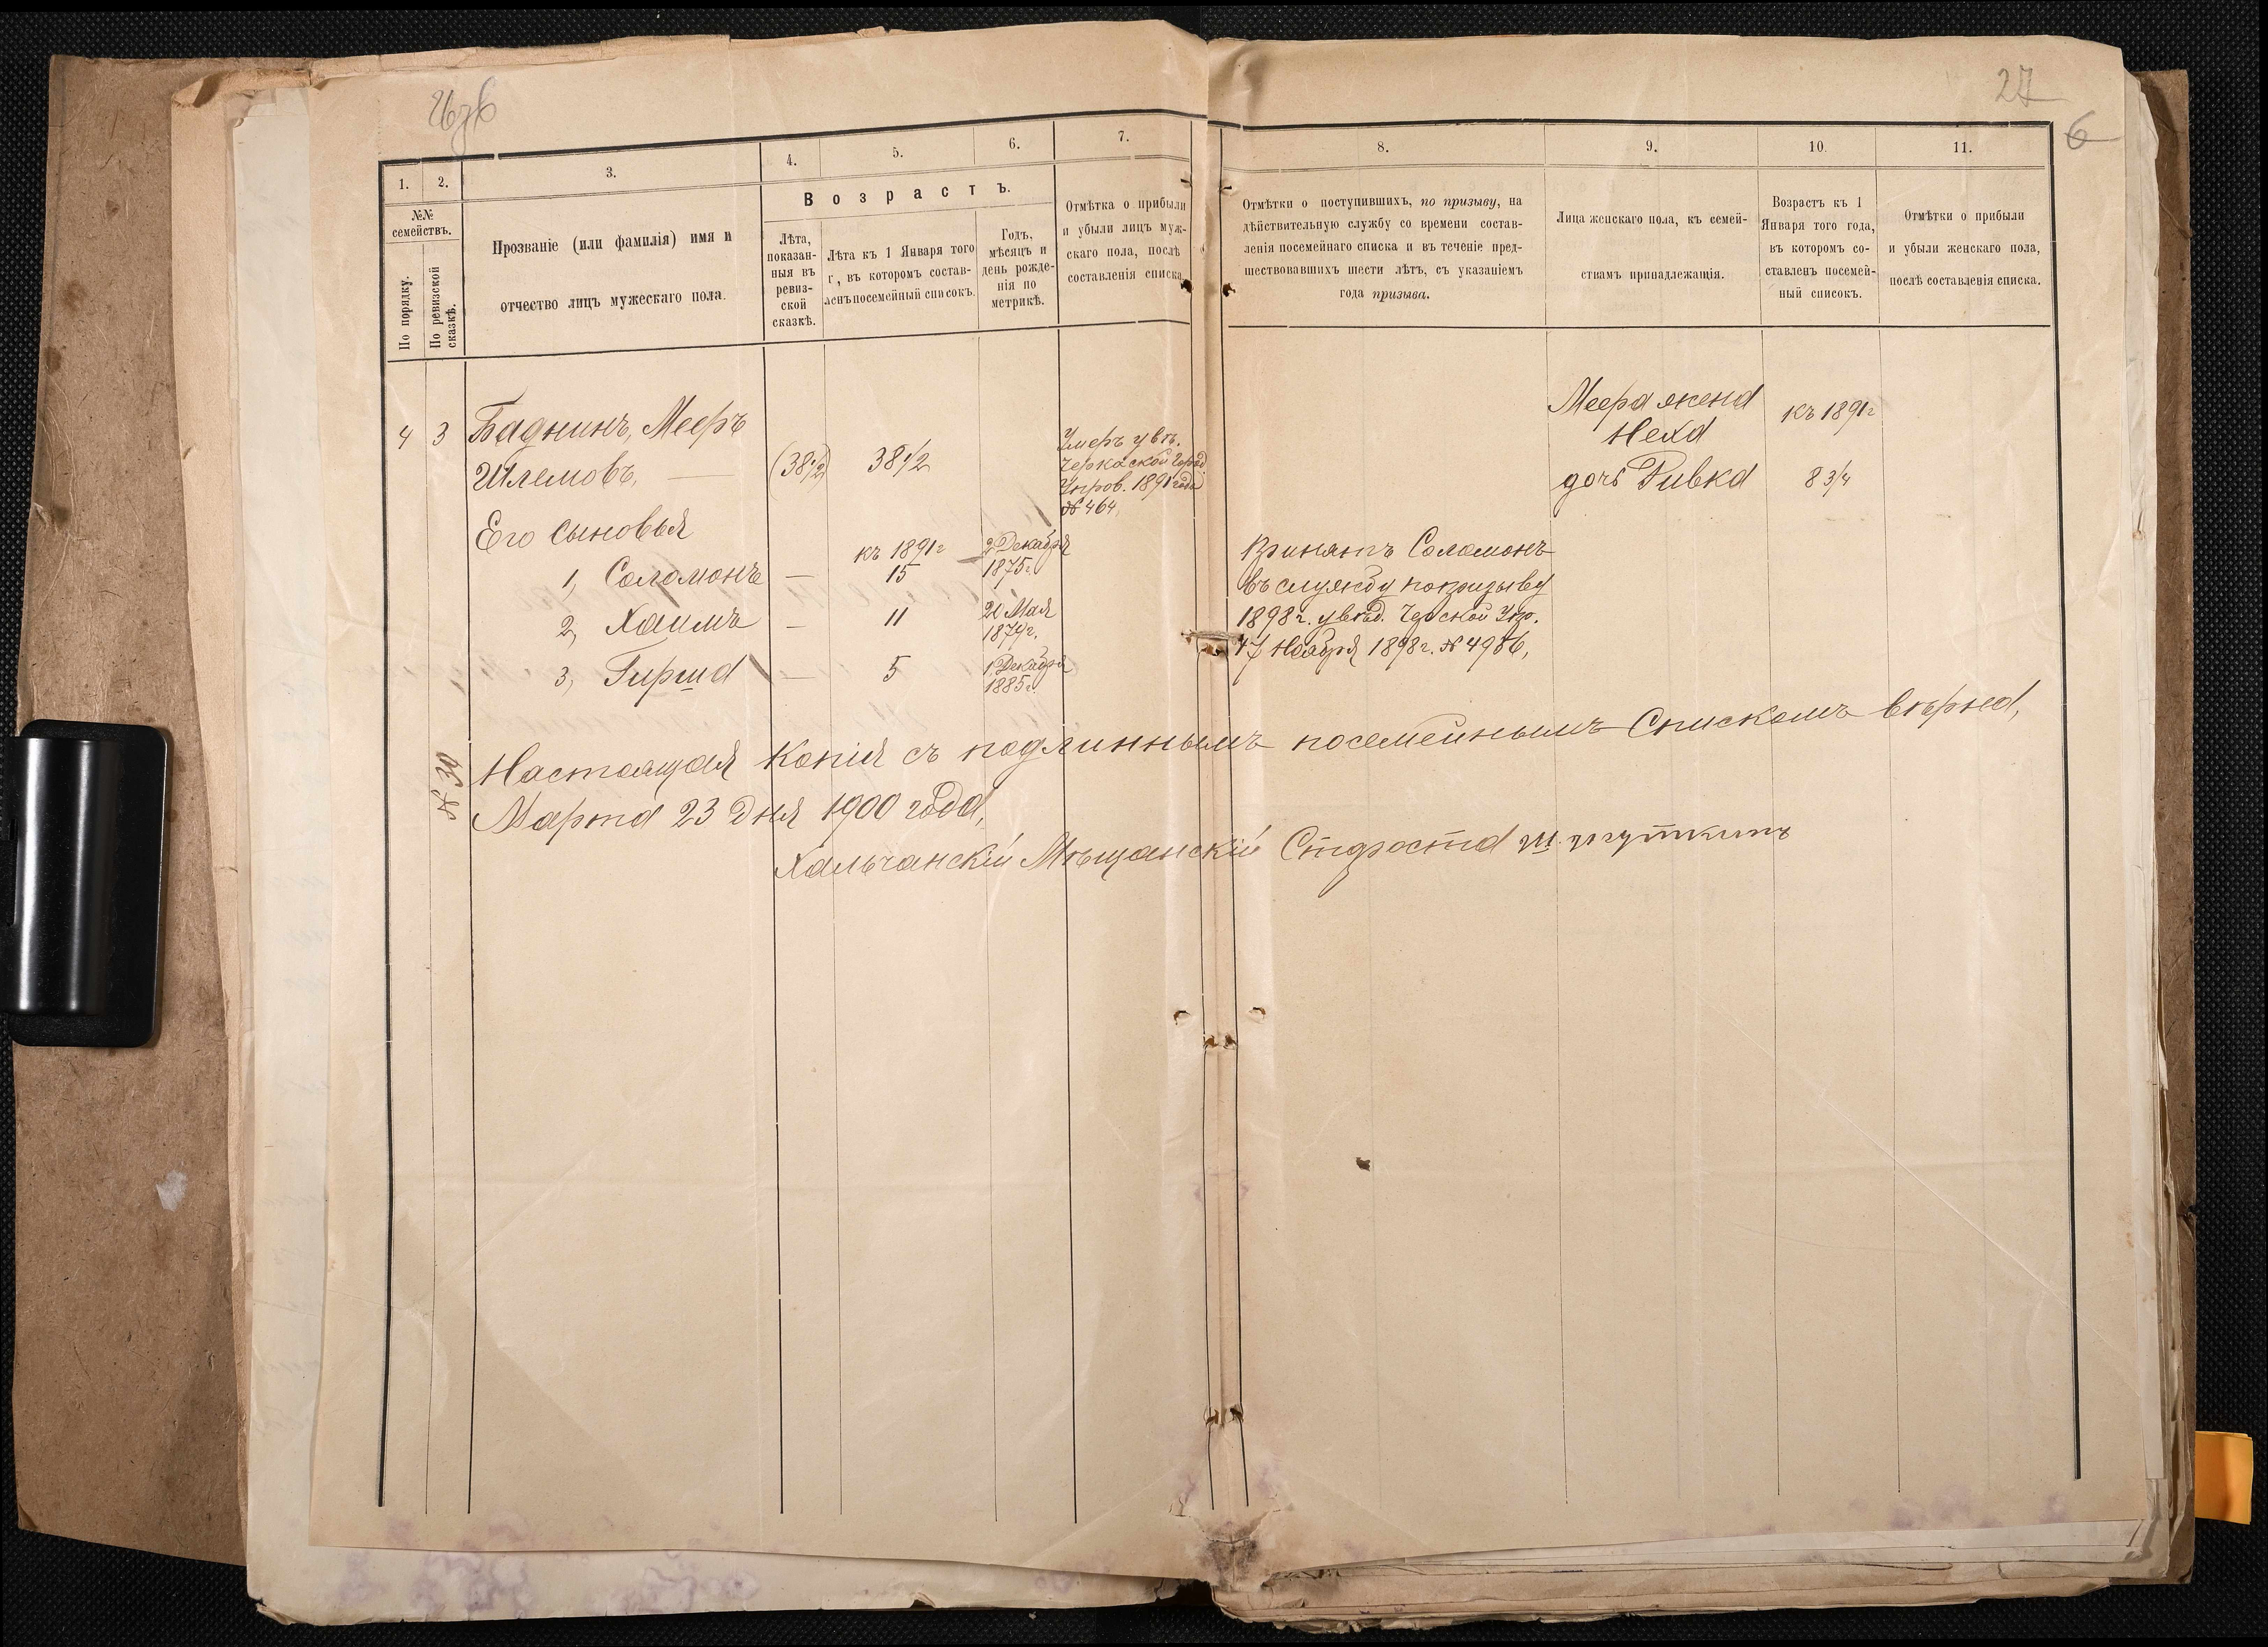 27
6
1.
2.
3.
4.
5.
6.
7.
8.
9.
10.
11.
№№
семействъ.
По порядку.
По ревизской
сказкѣ.
Прозваніе (или фамилія) имя и
отчество лицъ мужескаго пола.
Возрастъ.
Лѣта,
показан-
ныя въ
ревиз-
ской
сказкѣ.
Лѣта къ 1 Января того
г, въ которомъ состав-
ленъ посемейный списокъ.
Годъ,
мѣсяцъ и
день рожде-
нія по
метрикѣ.
Отмѣтка о прибыли
и убыли лицъ муж-
скаго пола, послѣ
составленія списка
Отмѣтки о поступившихъ, по призыву, на
дѣйствительную службу со времени состав-
ленія посемейнаго списка и въ теченіе пред-
шествовавшихъ шести лѣтъ, съ указаніемъ
года призыва.
Лица женскаго пола, къ семей-
ствамъ принадлежащія.
Возрастъ къ 1
Января того года,
въ которомъ со-
ставленъ посемей-
ный списокъ.
Отмѣтки о прибыли
и убыли женскаго пола,
послѣ составленія списка.
4 3 Баднинъ, Мееръ
Шлемовъ, (38 1/2) 38 1/2
Умеръ увѣ.
Черкаской Город
Упров. 1891 года
№ 464,
Меера жена
Неха
къ 1891 г
дочь Ривка 8 3/4
Его сыновья
1, Соломонъ — къ 1891 г 15 2 Декабря 1875 г.
2, Хаимъ — 11 20 Мая 1879 г.
3, Гирша — 5 1 Декабря 1885 г.
Принятъ Соломонъ
въ службу по призыву
1898 г. увѣд. Черской Упр.
17 Ноября 1898 г. № 4986,
№ 30
Настоящая копія съ подлиннымъ посемейнымъ Спискомъ вѣрна,
Марта 23 дня 1900 года,
Хальчанскій Мѣщанскій Староста